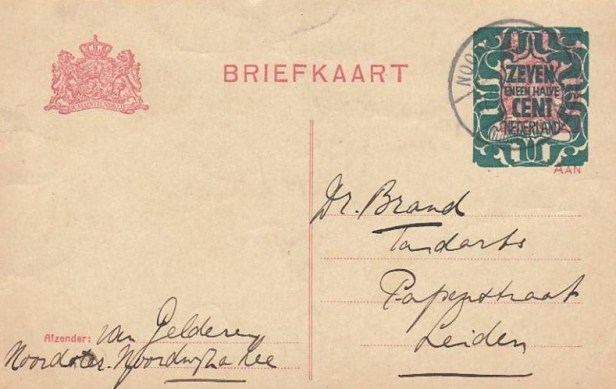 BRIEFKAART
NOO
ZEVEN
EN EEN HALVE
CENT
NEDERLAND
AAN
Dr. Brand
Tandarts
Papenstraat
Leiden
Afzender: van Gelderen
Noordwijk a Zee